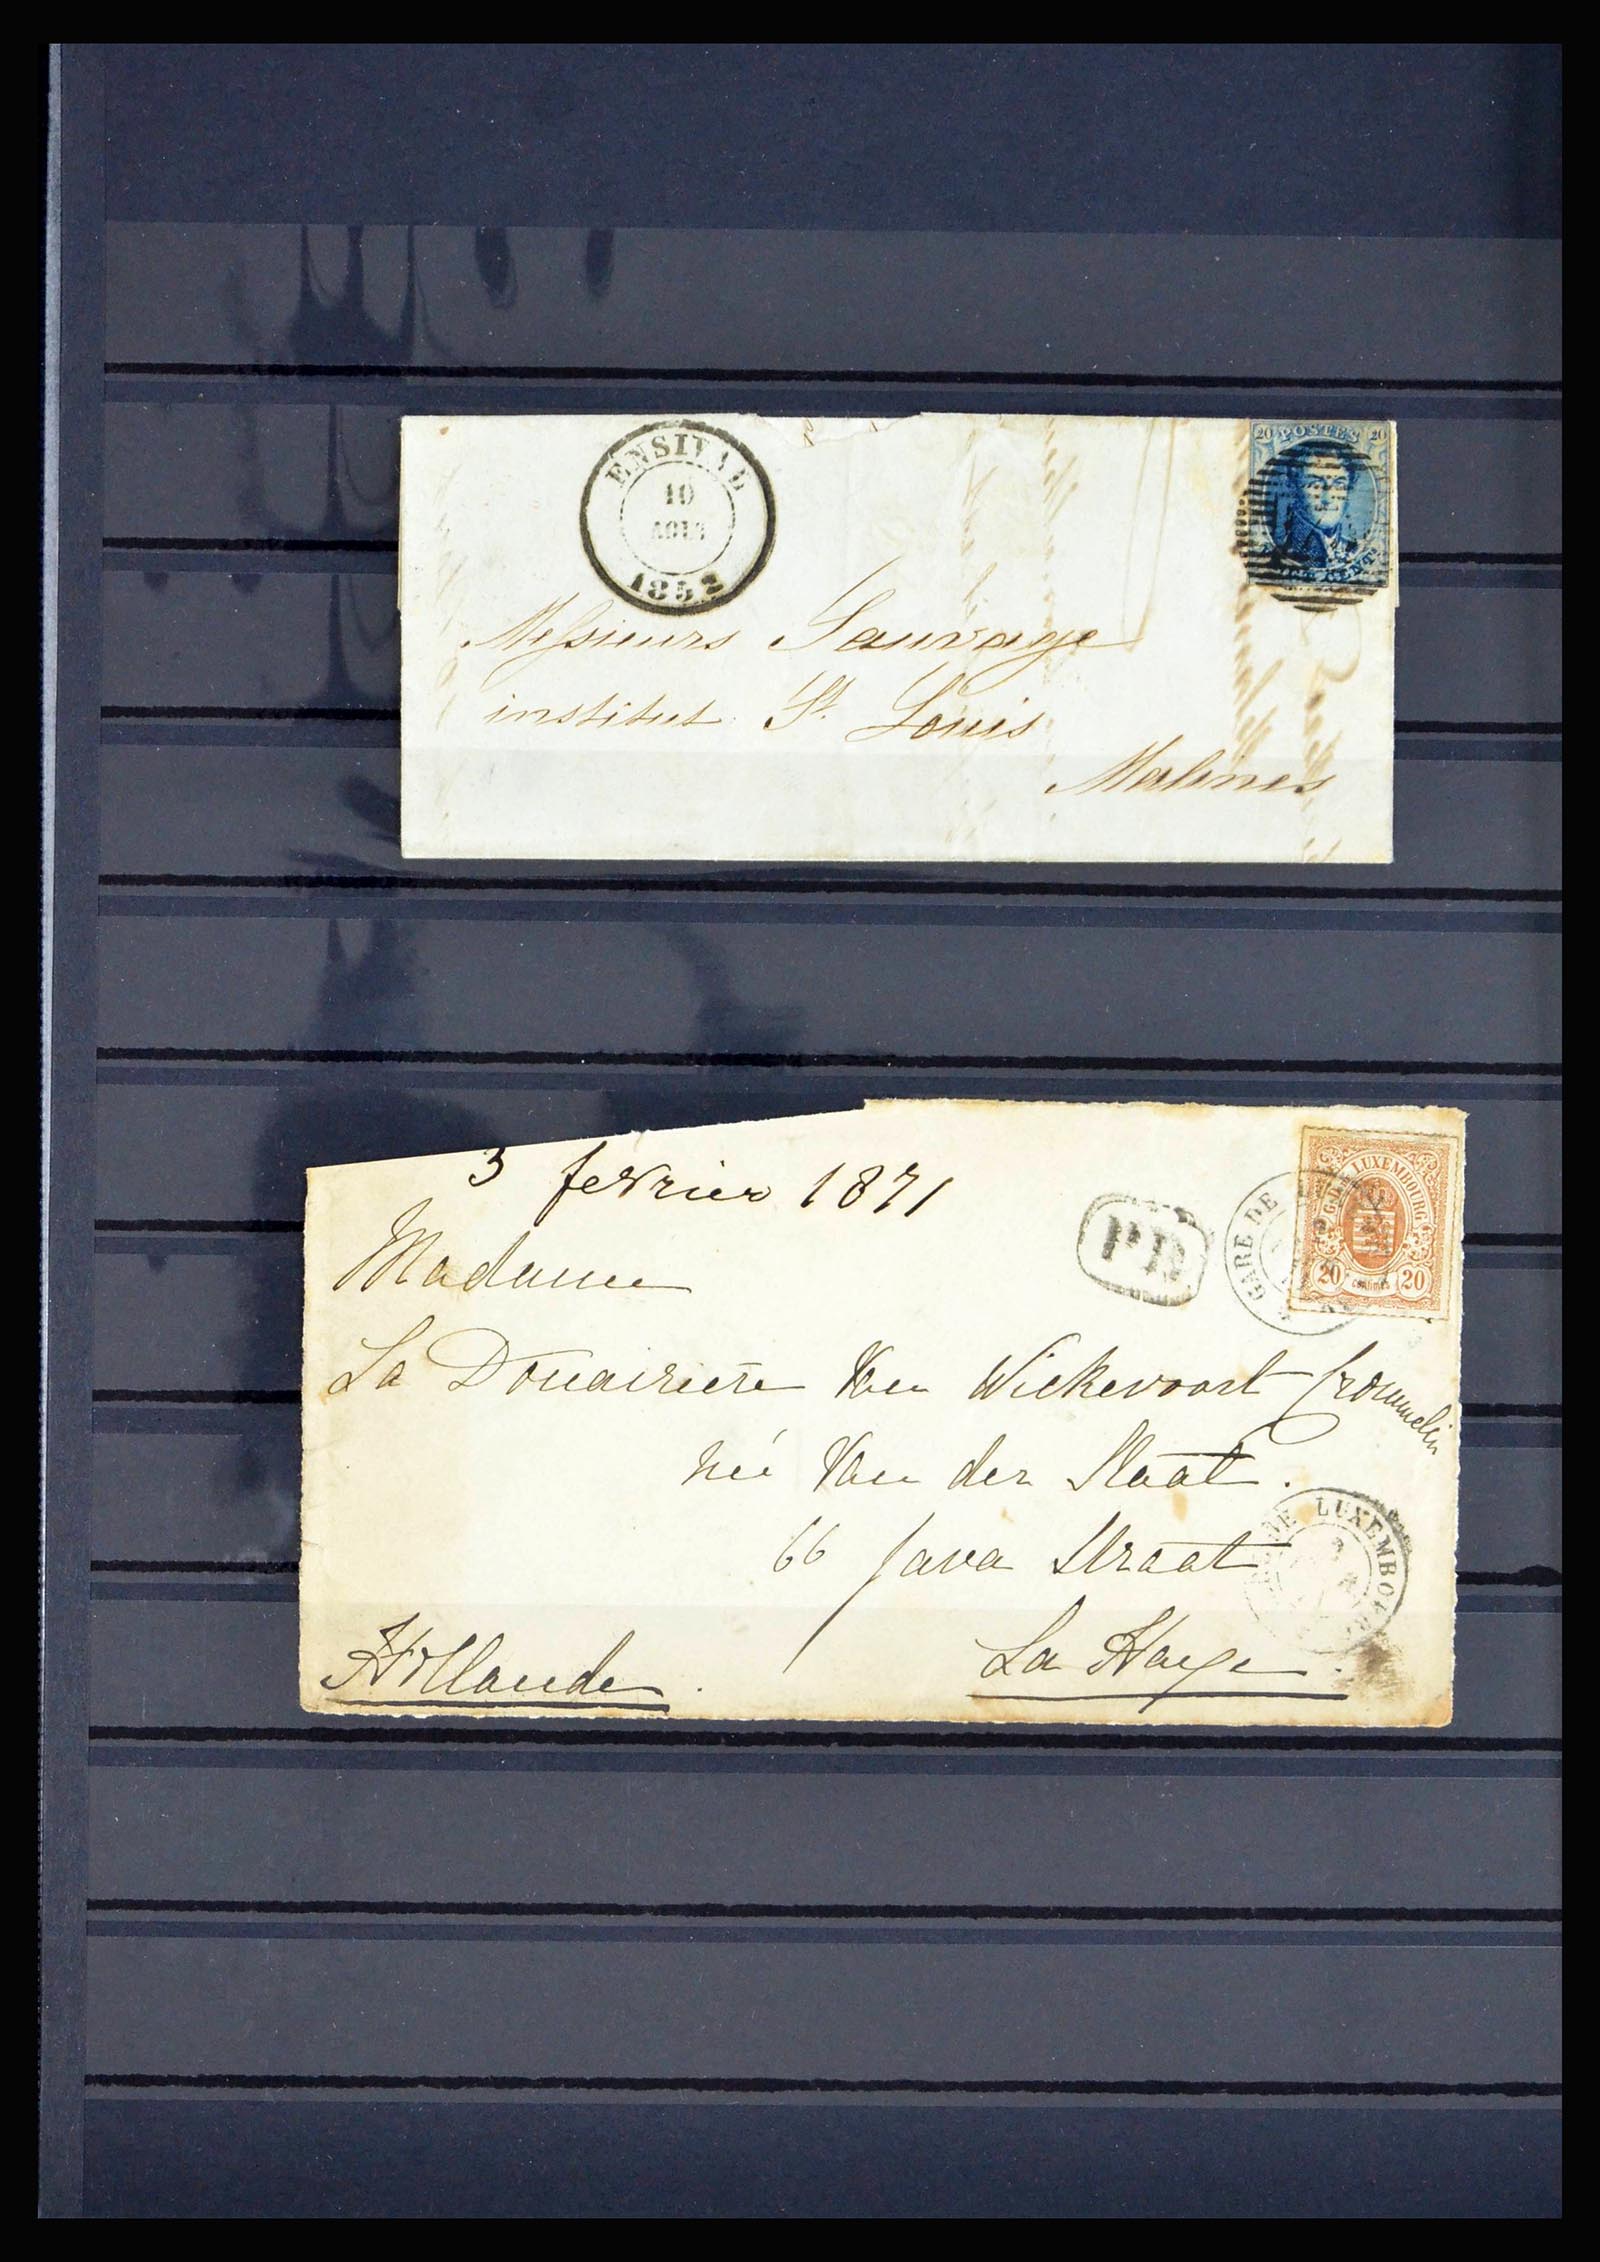 ENSIVAL
10
AOUT
1858
20 POSTES 20
CENT
Messieurs Sauvage
institut St. Louis
Malines
3 fevrier 1871
PD
GARE DE
G.D. DE LUXEMBOURG
20 centimes 20
Madame
La Douairière Van Wickevoort Crommelin
né Van der Staat.
66 Java Straat
LUXEMBOURG
La Haye.
Hollande.